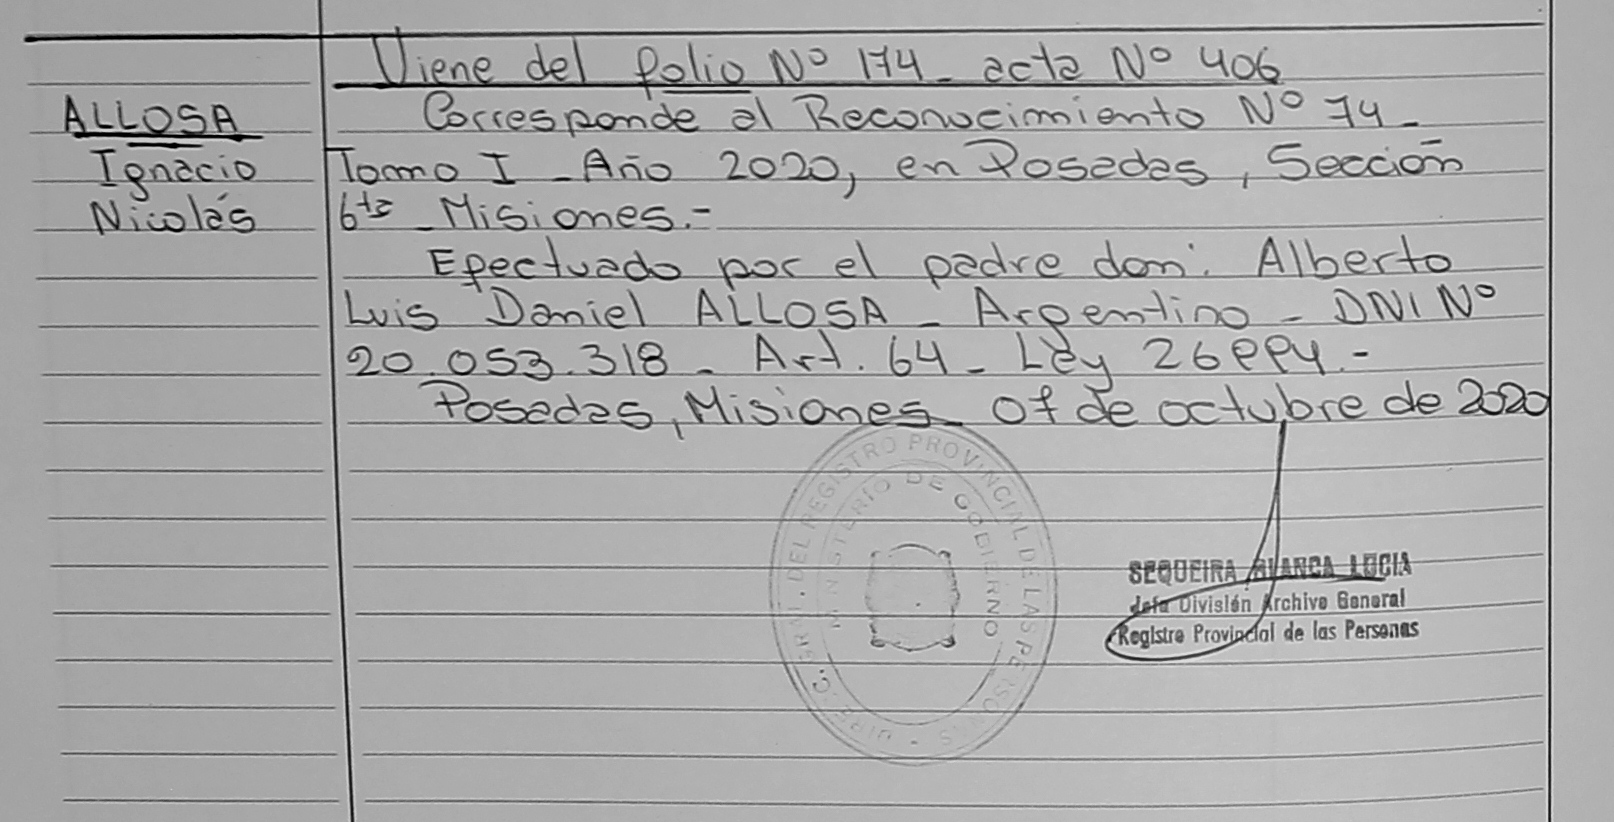 Viene del folio Nº 174 - acta Nº 406
ALLOSA
Ignacio
Nicolás
Corresponde al Reconocimiento Nº 74 -
Tomo I - Año 2020, en Posadas, Sección
6ta - Misiones.-
Efectuado por el padre don: Alberto
Luis Daniel ALLOSA - Argentino - DNI Nº
20.053.318 - Art. 64 - Ley 26994.-
Posadas, Misiones - 07 de octubre de 2020
DIREC. GRAL. DEL REGISTRO PROVINCIAL DE LAS PERSONAS
MINISTERIO DE GOBIERNO
SEQUEIRA BLANCA LUCIA
Jefa División Archivo General
Registro Provincial de las Personas